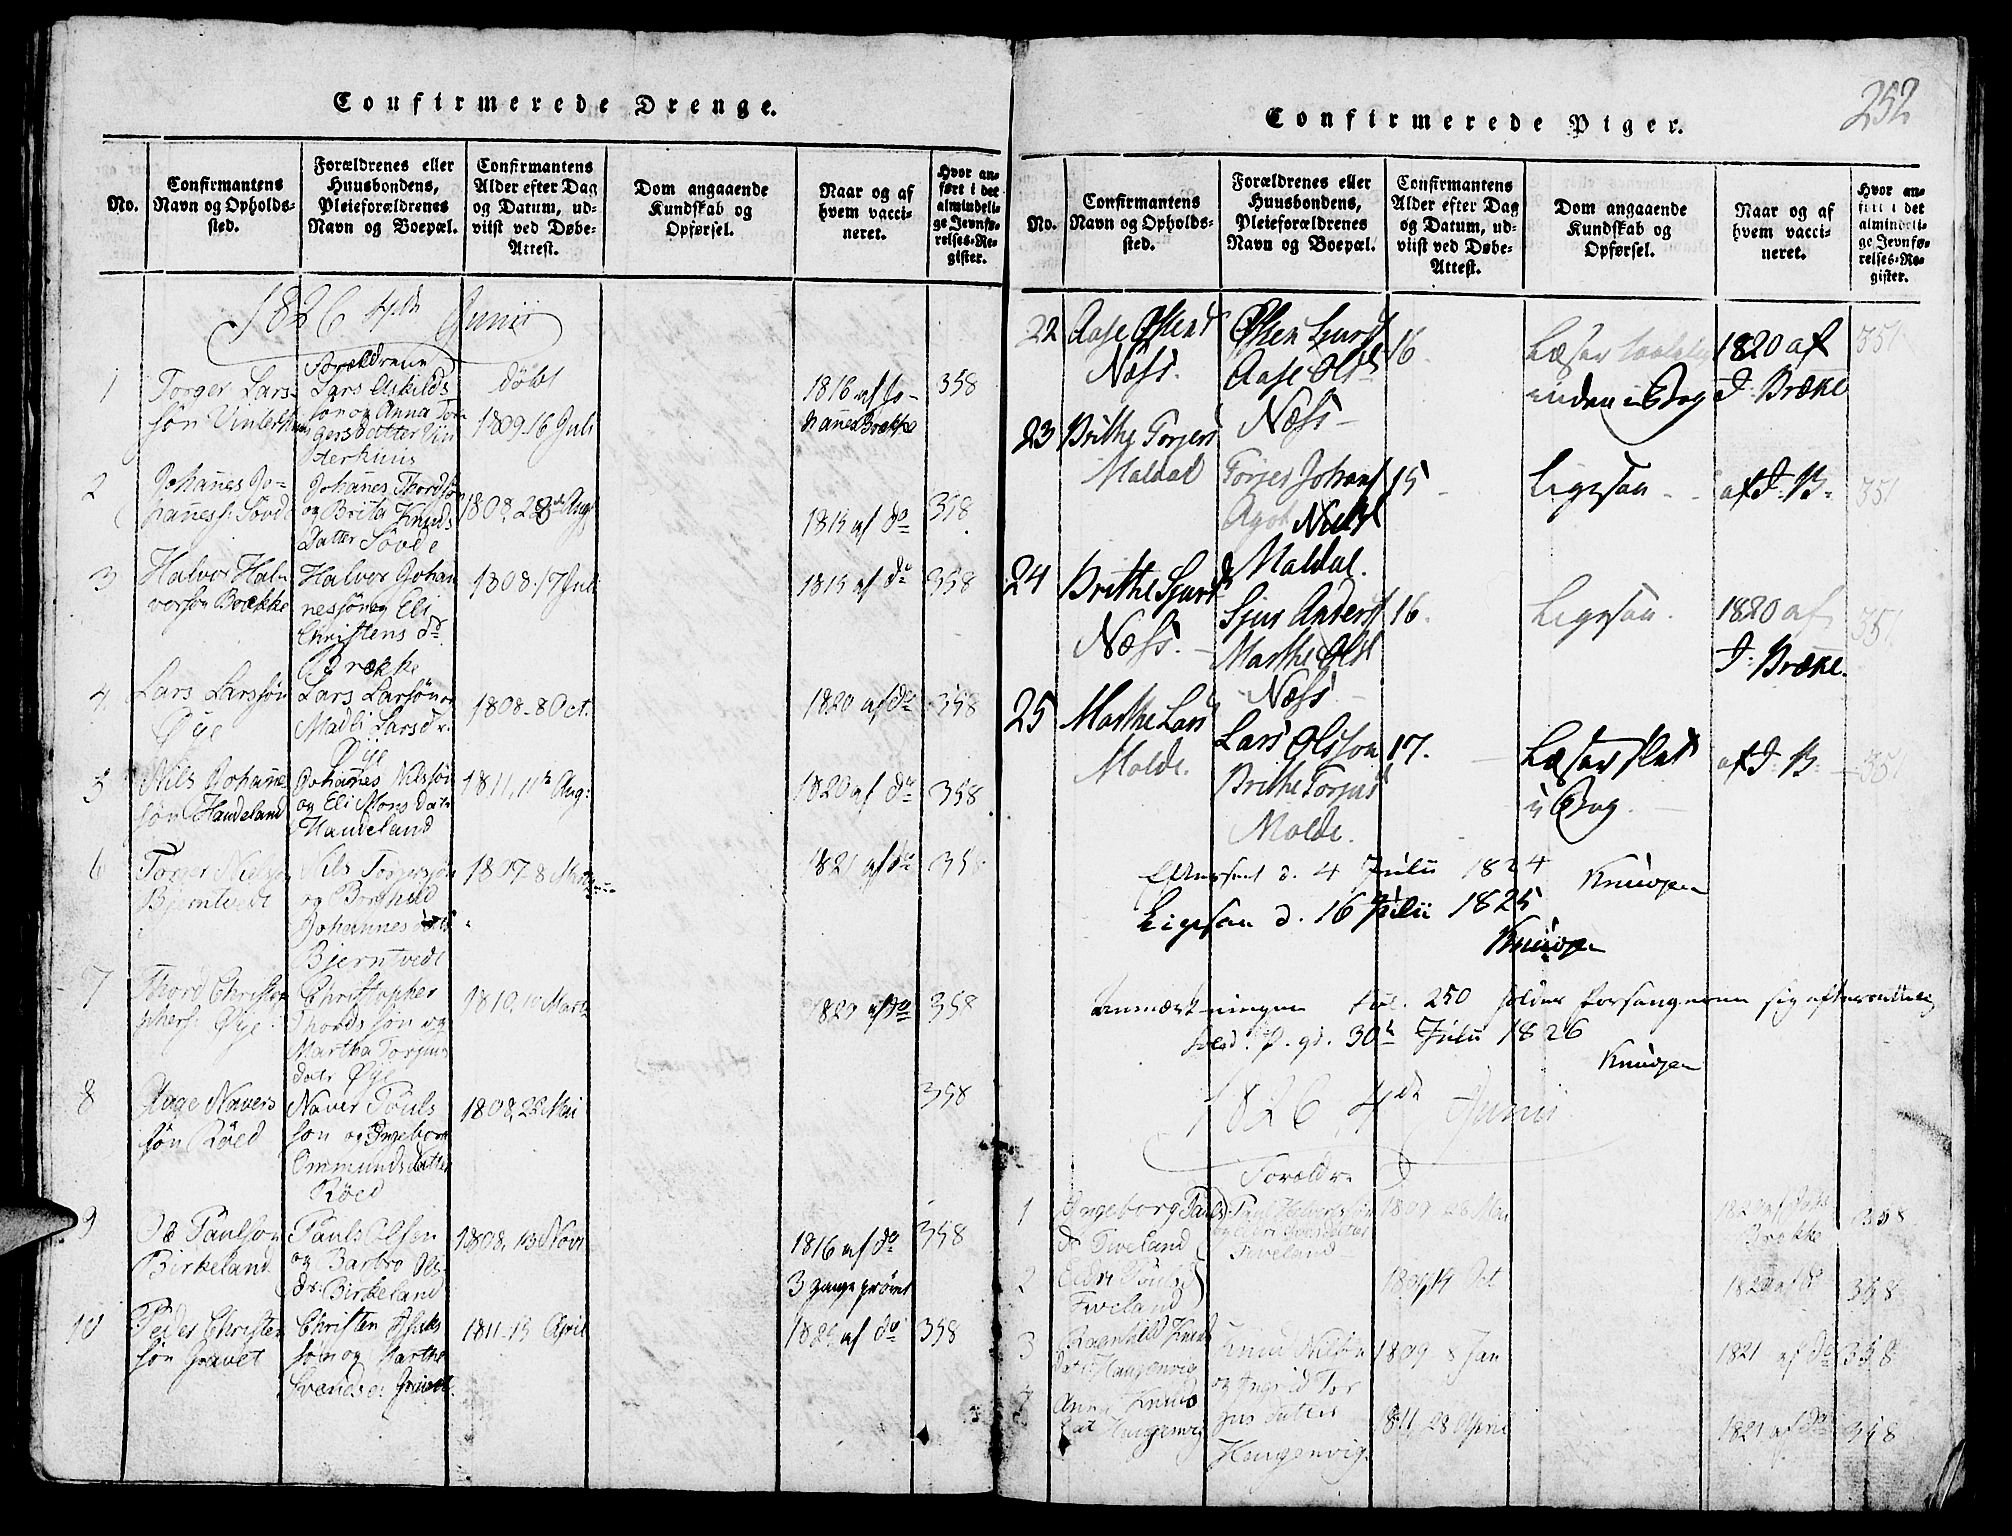 Confirmerede Drenge.
No.
Confirmantens
Navn og Opholds-
sted.
Forældrenes eller
Huusbondens,
Pleieforældrenes
Navn og Boepæl.
Confirmantens
Alder efter Dag
og Datum, ud-
viist ved Døbe-
Attest.
Dom angaaende
Kundskab og
Opførsel.
Naar og af
hvem vacci-
neret.
Hvor an-
ført i det
almindeli-
ge Jevnfø-
relses-Re-
gister.
1826 4de Junii
Forældrene
1
Torger Lars-
søn Vinterhuus
Lars Eskilds
søn og Anna Tor-
gersdatter Vin
terhuus
døbt
1809 16 Juli
1816 af Jo-
hannes Brække
358
2
Johanes Jo-
haness. Søvde
Johanes Thordsøn
og Brita Knuds
Datter Søvde
1808, 28de Aug
1815 af do
358
3
Halvor Hal-
vorsøn Brække
Halvor Johan
nessøn og Eli
Christens dr
Brække
1808. 17 Juli
1815 af do
358
4
Lars Larssøn
Øye
Lars Larsøn og
Madli Larsdr.
Øye
1808. 8 Oct.
1820 af do
358
5
Nils Johane
søn Handeland
Johanes Nilssøn
og Eli Mons datr
Handeland
1811, 11te Aug:
1820 af do
358
6
Torger Nielsøn
Bjerntvedt
Nils Torgersøn
og Borghild
Johannes datr
Bjerntvedt
1807 8 Martz
1821 af do
358
7
Thord Christop
phers. Øye
Christopher
Thordssøn og
Martha Torjus
datr Øye
1810, 10 Martz
1820 af do
358
8
Aage Navers
søn Røed
Naver Pouls
søn og Ingebor
Ommundsdatter
Røed
1808, 22 Mai
358
9
Paulsøn
Birkeland
Pauls Olsen
og Barbro Ols
dr. Birkeland
1808, 13 Novr
1816 af do
3 gange prøvet
358
10
Peder Christen
søn Gravet
Christen
søn og Marthe
Svendsd: Gravet.
1811. 15 April
af do
358
252
Confirmerede Piger.
No.
Confirmantens
Navn og Opholds-
sted.
Forældrenes eller
Huusbondens,
Pleieforældrenes
Navn og Boepæl.
Confirmantens
Alder efter Dag
og Datum, ud-
viist ved Døbe-
Attest.
Dom angaaende
Kundskab og
Opførsel.
Naar og af
hvem vacci-
neret.
Hvor an-
ført i det
almindeli-
ge Jevnfø-
relses-Re-
gister.
22
Aase Østensd
Næss.
Østen Sjurs
Aase Olsd
Næss
16.
Læser
inden i Bog
1820 af
J. Bræke
351
23
Brithe Torjers
Maldal
Torjer Johans
Agot Nielsd
Maldal.
15
Ligesaa
af J. B.
351
24
Brithe Sjursd
Næss.
Sjur Anders
Marthe Olsd
Næss
16.
Ligesaa.
1820 af
J. Bræke.
351
25
Marthe Larsd
Molde.
Lars Olsson
Brithe Torjusd
Molde.
17.
Læser slet
i Bog.
af J. B.
351
Efterseet d. 4 Julii 1824 Knudzen
Ligesaa d. 16 Julii 1825
Knudzen
Anmærkningen Fol. 250 holder Forsangeren sig efterrettelig
P. gd. 30te Julii 1826
Knudzen
1826, 4de Junii
Forældr.
1
Ingeborg Pauls
dr Fiveland
Paul Halvorssøn
Fiveland
1809 28 Mai
1820 af Johs
Brække
358
2
Eldri Pouls
Fiveland
1809, 14 Oct
1820 af do
358
3
Ragnhild Knuds
datr Haugenvig
Knud Nilsen
og Ingrid Tor
jus datter
Haugenvig
1809 8 Jan
1821 af do
358
4
Anne Knuds
dat Haugenvig
1811, 28 April
1821 af do
358